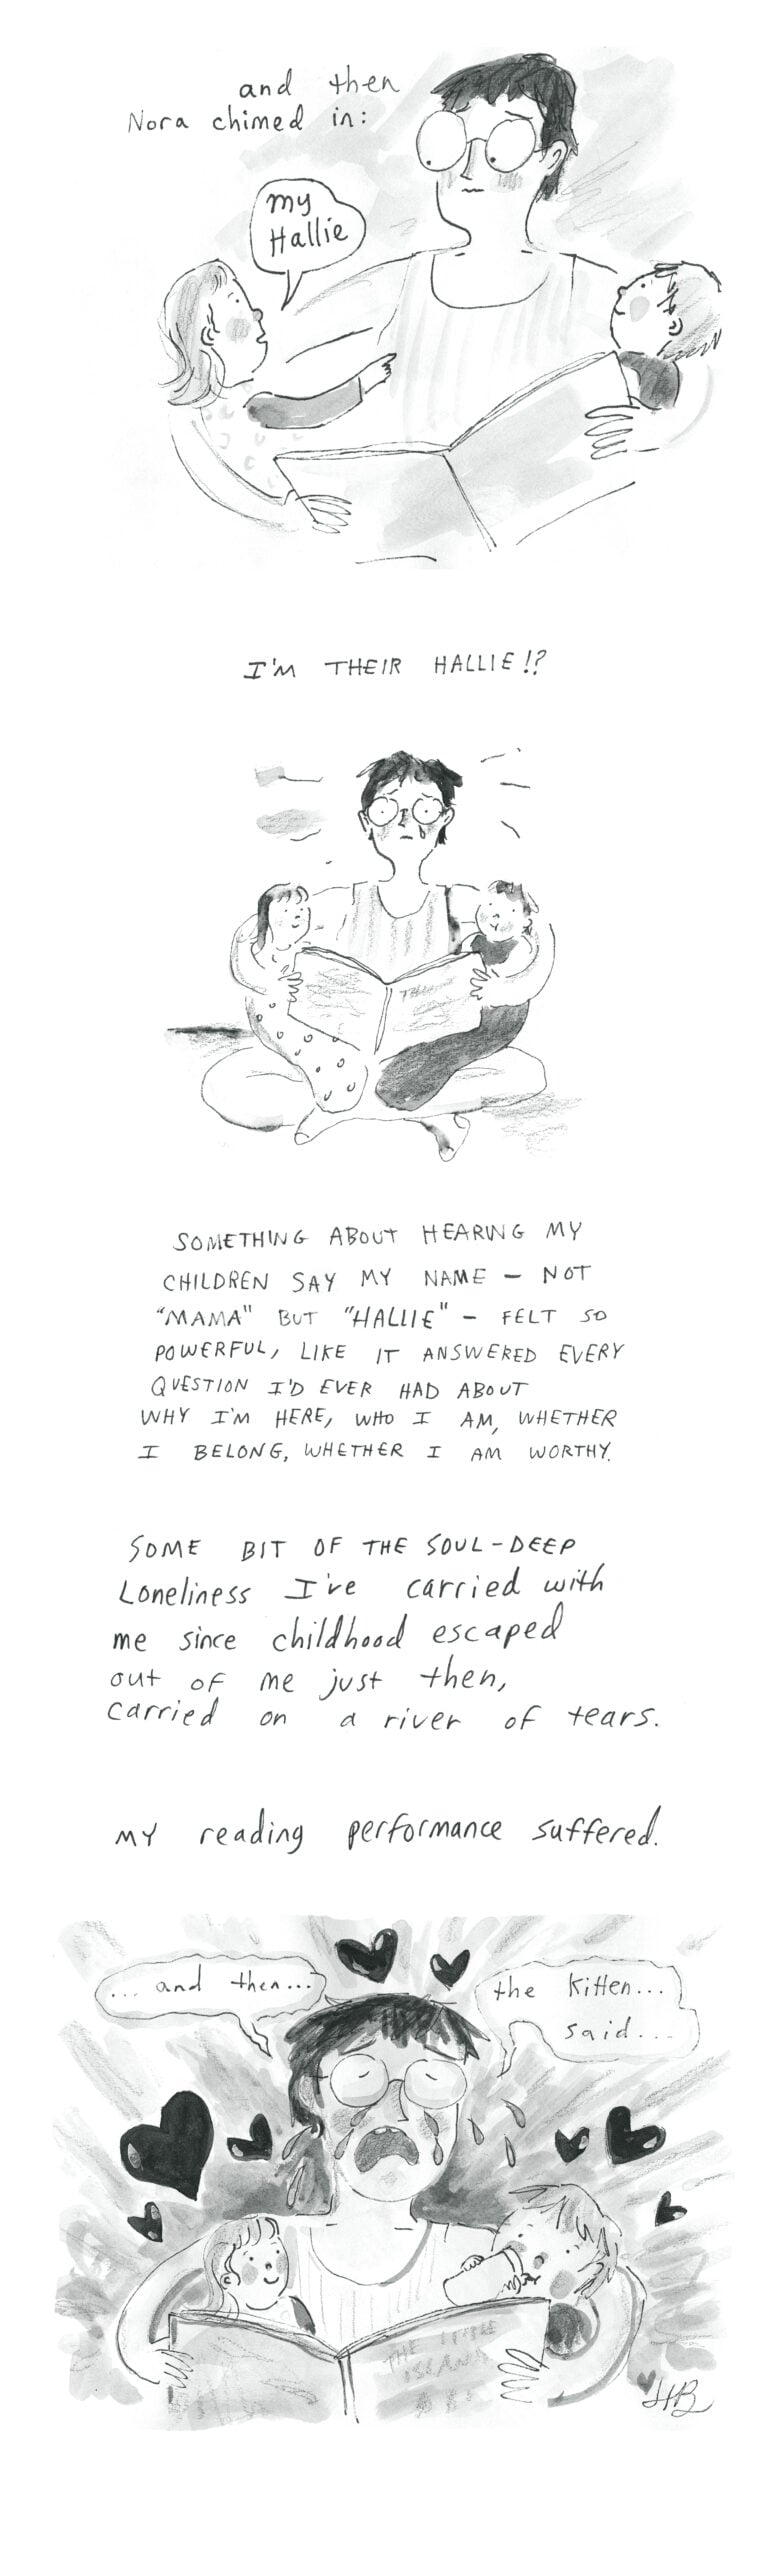 and then
Nora chimed in:
my
Hallie
I'M THEIR HALLIE!?
SOMETHING ABOUT HEARING MY
CHILDREN SAY MY NAME – NOT
"MAMA" BUT "HALLIE" – FELT SO
POWERFUL, LIKE IT ANSWERED EVERY
QUESTION I'D EVER HAD ABOUT
WHY I'M HERE, WHO I AM, WHETHER
I BELONG, WHETHER I AM WORTHY.
SOME BIT OF THE SOUL-DEEP
Loneliness I've carried with
me since childhood escaped
out of me just then,
carried on a river of tears.
MY reading performance suffered.
... and then...
the kitten...
said...
THE LITTLE
ISLAND
HB